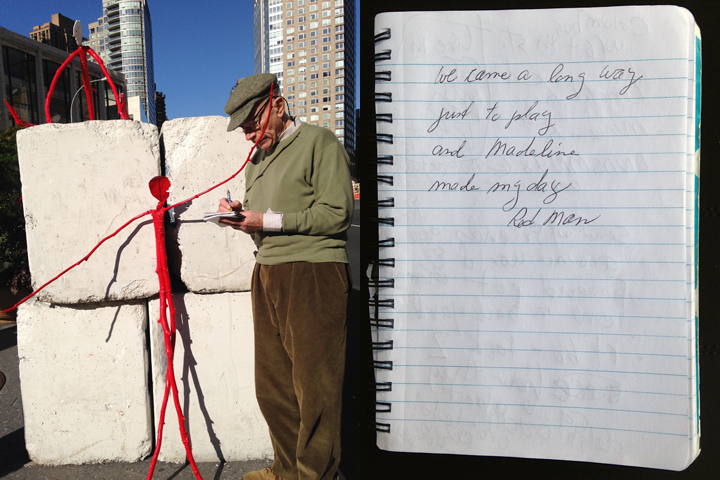 We came a long way
just to play
and Madeline
made my day
Red Man